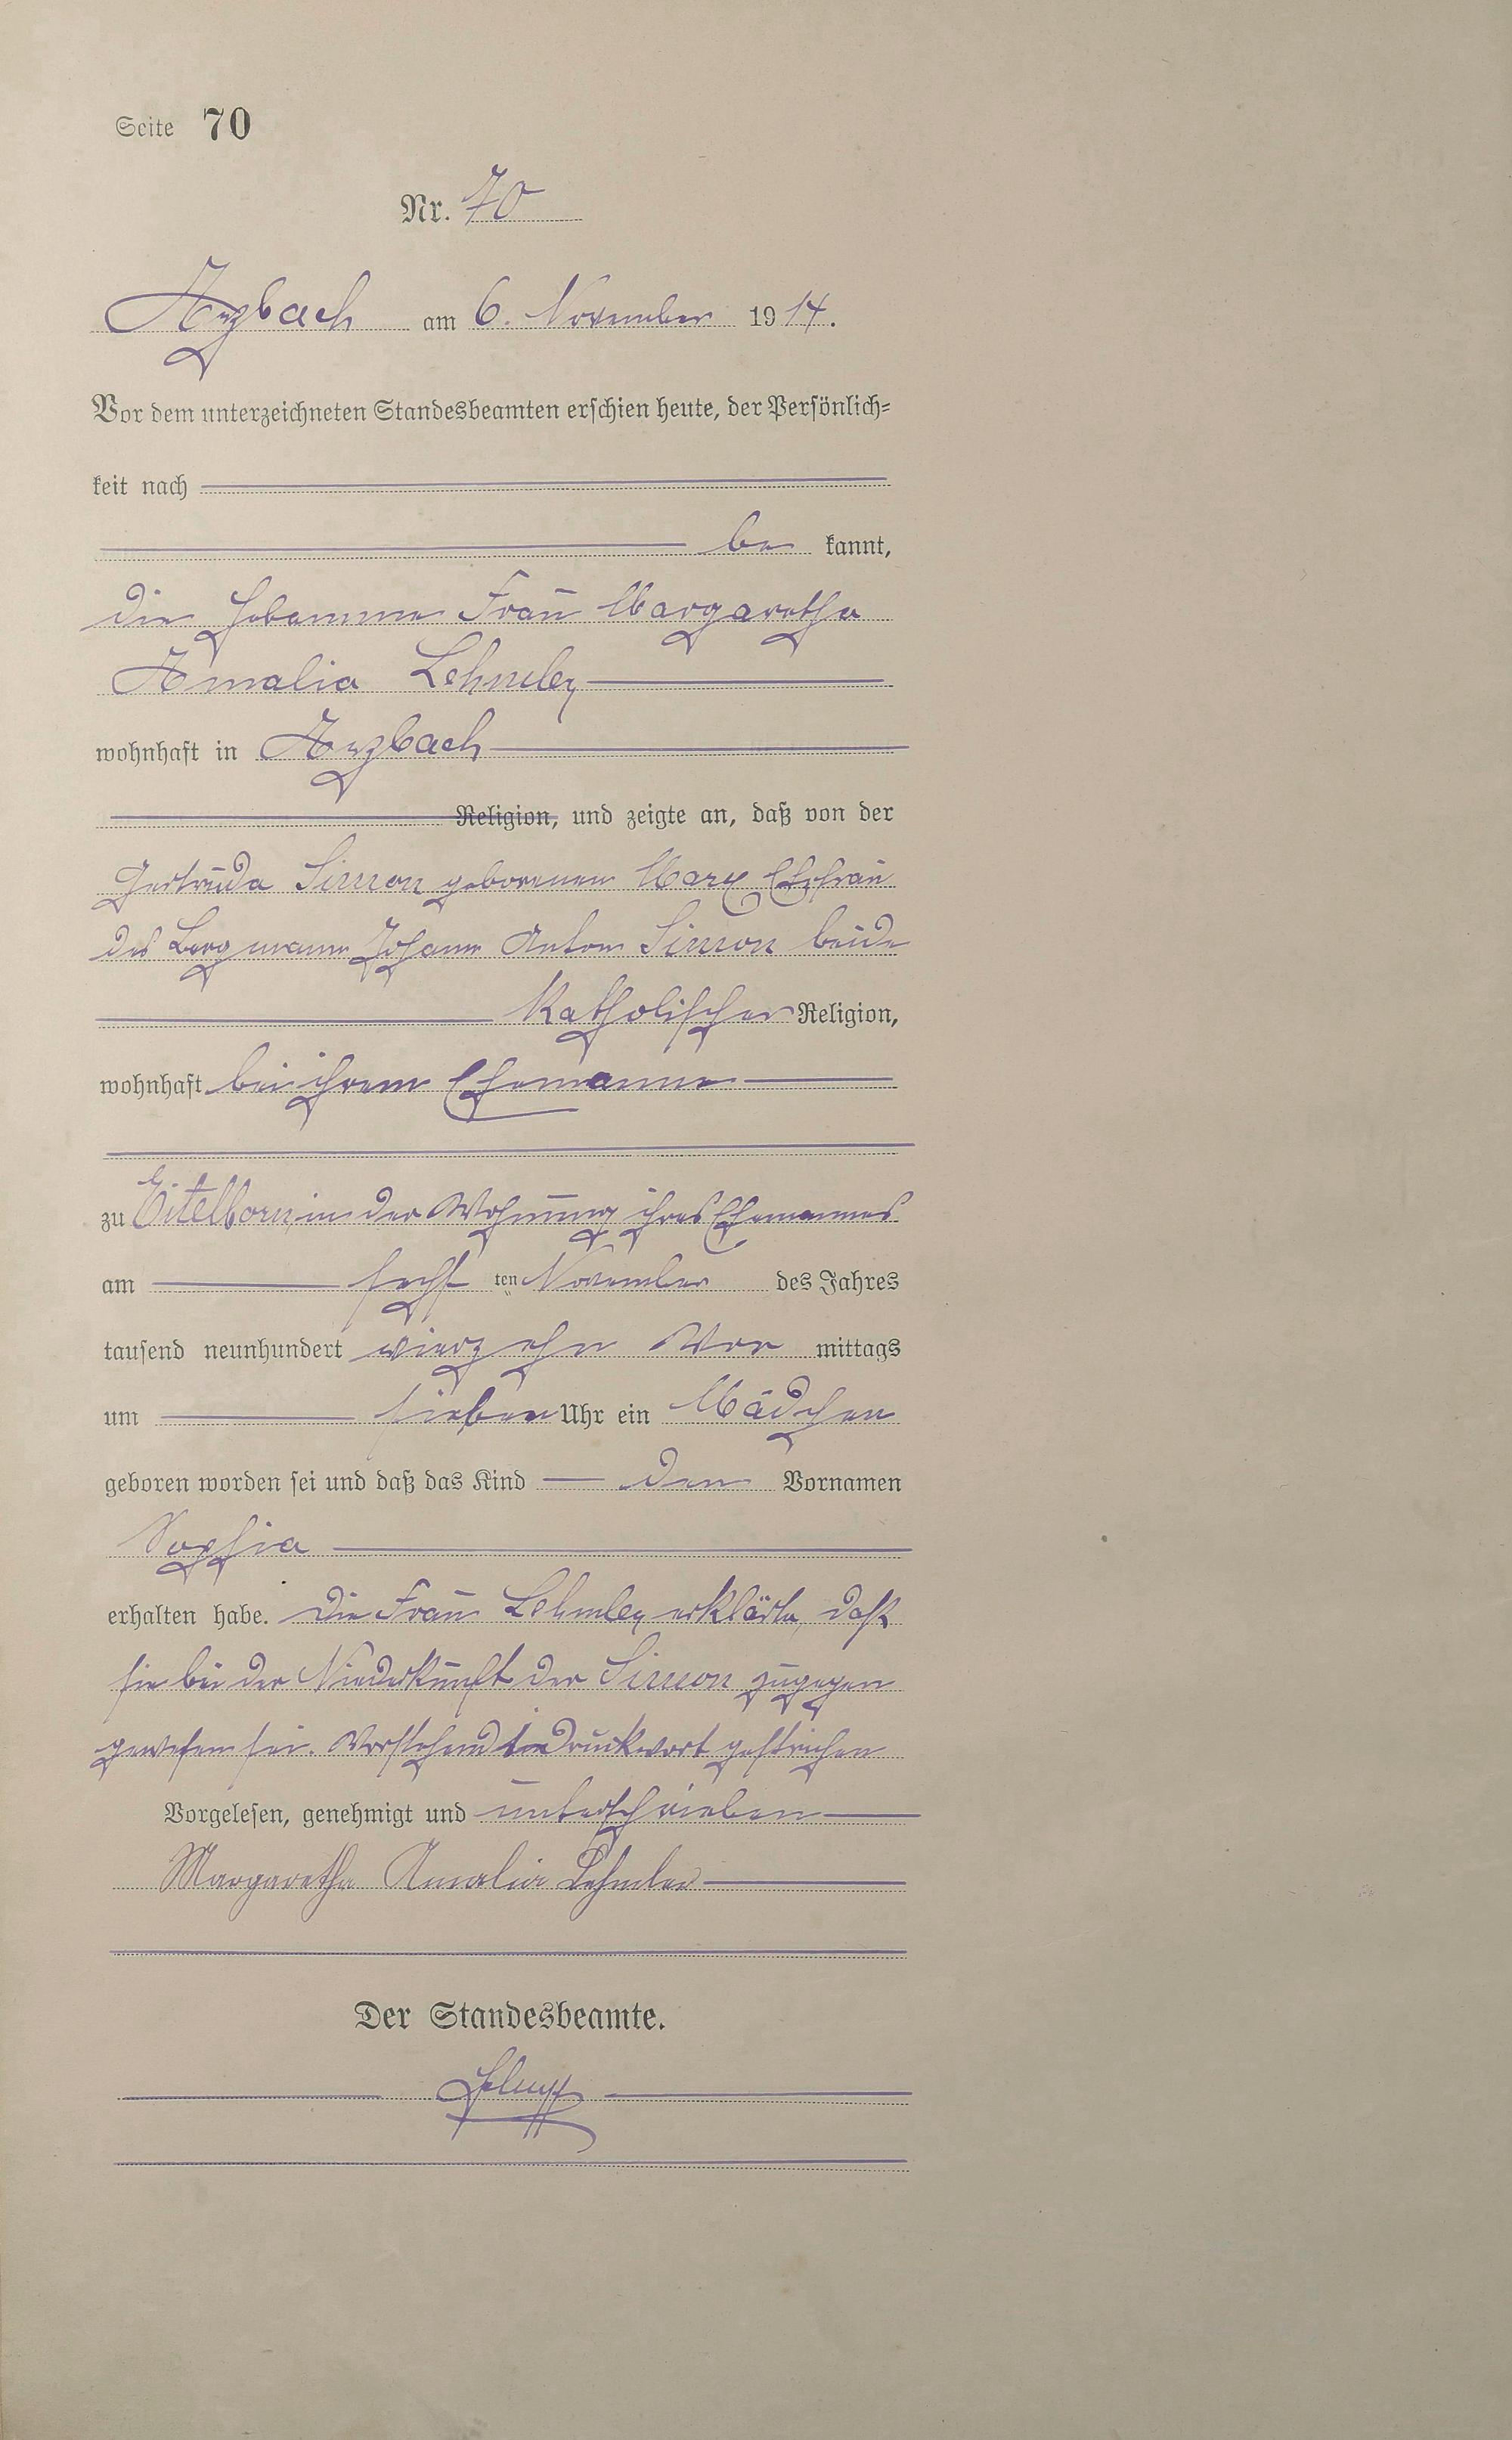 Seite 70
Nr. 70
Arzbach am 6. November 1914.
Vor dem unterzeichneten Standesbeamten erschien heute, der Persönlich=
keit nach
be kannt,
die Hebamme Frau Margaretha
Amalia Lehmler
wohnhaft in Arzbach
Religion, und zeigte an, daß von der
Gertruda Simon geborenen Marx Ehefrau
des Bergmann Johann Anton Simon beide
katholischer Religion,
wohnhaft bei ihrem Ehemanne
zu Eitelborn, in der Wohnung ihres Ehemannes
am sechsten November des Jahres
tausend neunhundert vierzehn Vor mittags
um sieben Uhr ein Mädchen
geboren worden sei und daß das Kind den Vornamen
Sophia
erhalten habe. Die Frau Lehmler erklärte, daß
sie bei der Niederkunft der Simon zugegen
gewesen sei. Vorstehend Druckwort gestrichen
Vorgelesen, genehmigt und unterschrieben
Margaretha Amalia Lehmler
Der Standesbeamte.